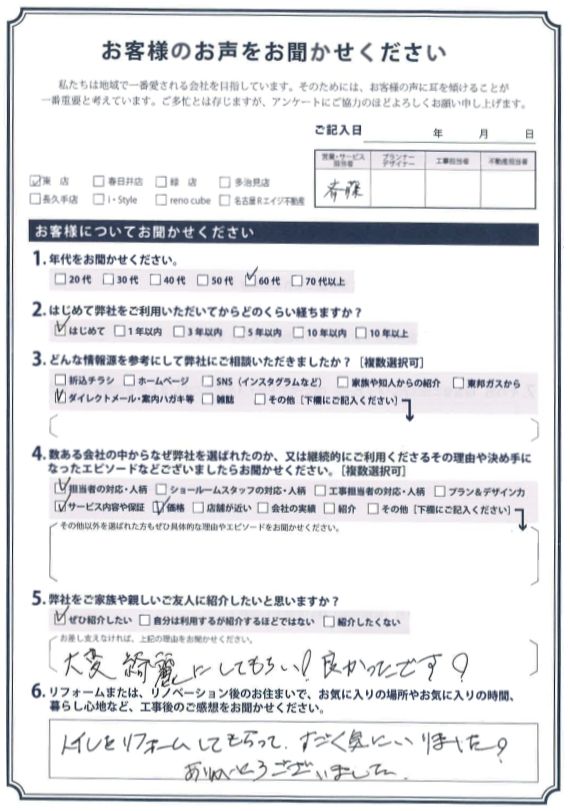 お客様のお声をお聞かせください
私たちは地域で一番愛される会社を目指しています。そのためには、お客様の声に耳を傾けることが
一番重要と考えています。ご多忙とは存じますが、アンケートにご協力のほどよろしくお願い申し上げます。
ご記入日 年 月 日
営業・サービス担当者 プランナーデザイナー 工事担当者 不動産担当者
斉藤
☑東 店 □春日井店 □緑 店 □多治見店
□長久手店 □i・Style □reno cube □名古屋Rエイジ不動産
お客様についてお聞かせください
1. 年代をお聞かせください。
□20代 □30代 □40代 □50代 ☑60代 □70代以上
2. はじめて弊社をご利用いただいてからどのくらい経ちますか？
☑はじめて □1年以内 □3年以内 □5年以内 □10年以内 □10年以上
3. どんな情報源を参考にして弊社にご相談いただきましたか？［複数選択可］
□折込チラシ □ホームページ □SNS（インスタグラムなど） □家族や知人からの紹介 □東邦ガスから
☑ダイレクトメール・案内ハガキ等 □雑誌 □その他［下欄にご記入ください］
4. 数ある会社の中からなぜ弊社を選ばれたのか、又は継続的にご利用くださるその理由や決め手に
なったエピソードなどございましたらお聞かせください。［複数選択可］
☑担当者の対応・人柄 □ショールームスタッフの対応・人柄 □工事担当者の対応・人柄 □プラン&デザイン力
☑サービス内容や保証 ☑価格 □店舗が近い □会社の実績 □紹介 □その他［下欄にご記入ください］
その他以外を選ばれた方もぜひ具体的な理由やエピソードをお聞かせください。
5. 弊社をご家族や親しいご友人に紹介したいと思いますか？
☑ぜひ紹介したい □自分は利用するが紹介するほどではない □紹介したくない
お差し支えなければ、上記の理由をお聞かせください。
大変綺麗にしてもらい！良かったです
6. リフォームまたは、リノベーション後のお住まいで、お気に入りの場所やお気に入りの時間、
暮らし心地など、工事後のご感想をお聞かせください。
トイレをリフォームしてもらって、すごく気にいりました
ありがとうございました。